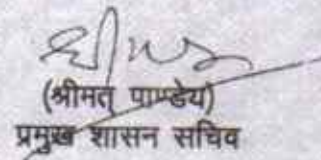 (श्रीमत् पाण्डेय)
प्रमुख शासन सचिव